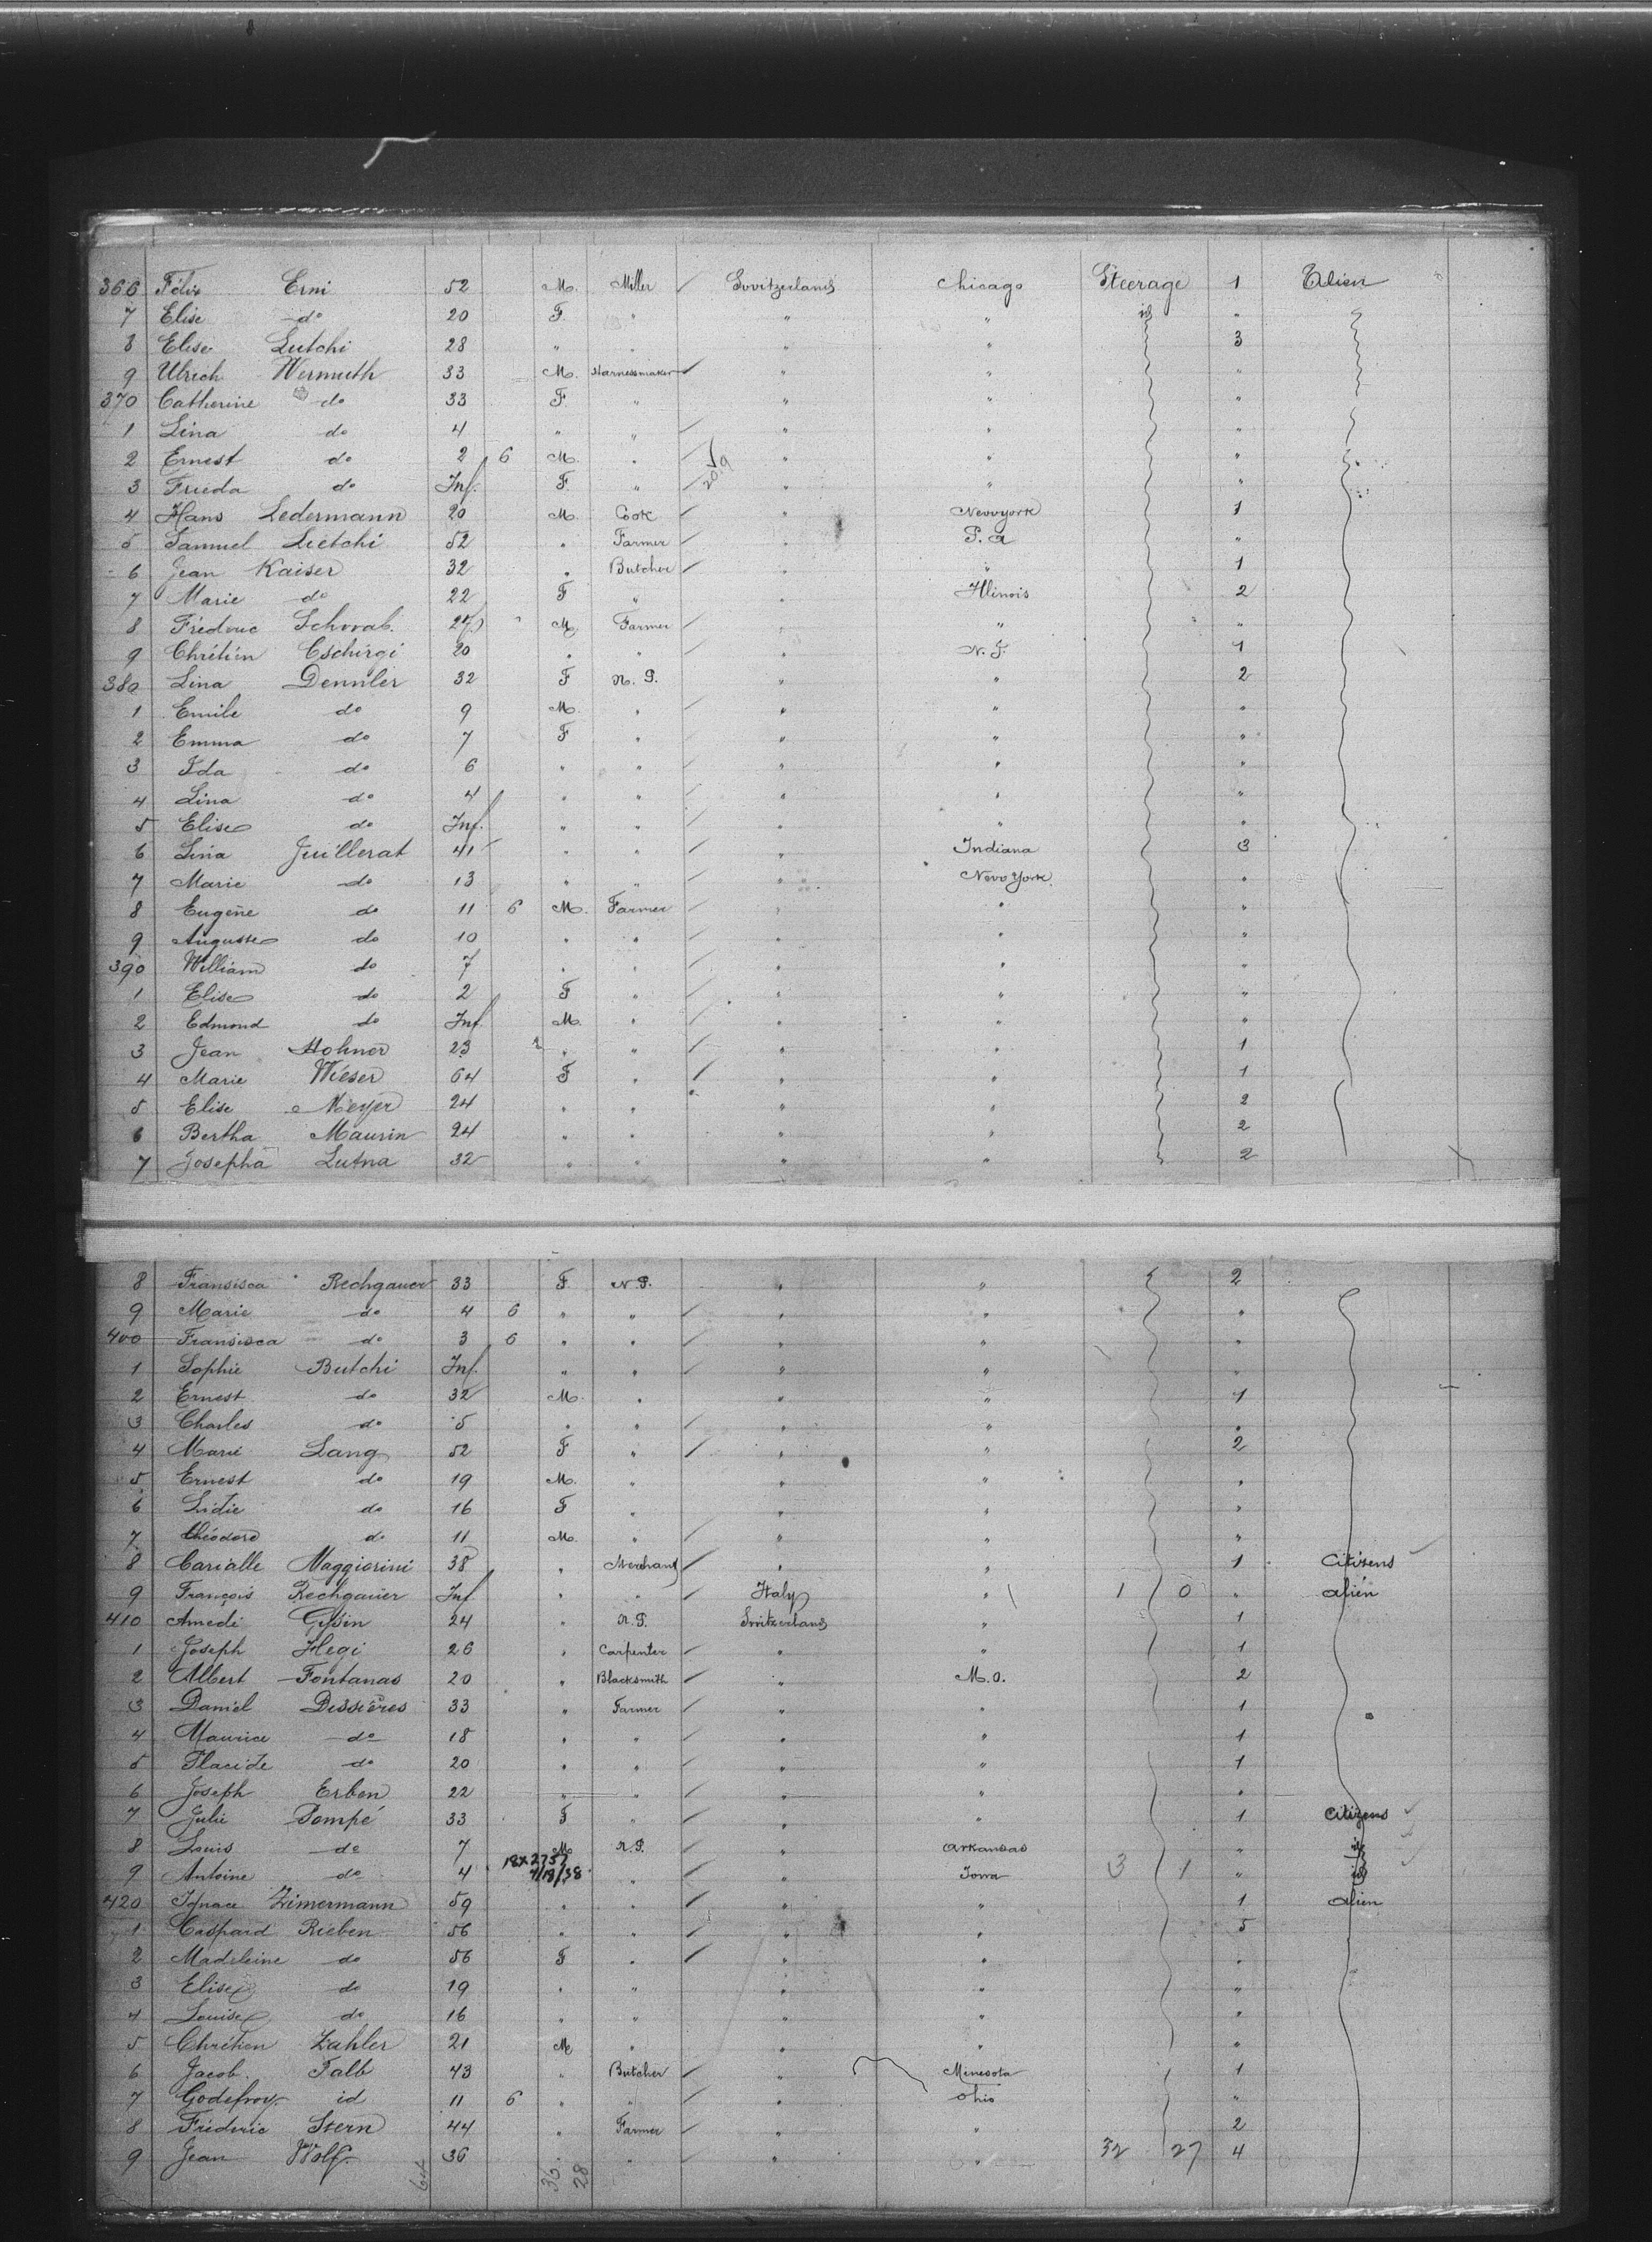 366 Félix Erni 52 M. Miller Switzerland Chicago Steerage 1 Alien
7 Elise do 20 F. " " " id "
8 Elise Lutchi 28 " " " " 3
9 Ulrich Wermuth 33 M. Harnessmaker " " "
370 Catherine do 33 F " " " "
1 Lina do 4 " " " " "
2 Ernest do 2 6 M. " " " "
3 Frieda do Inf. F. " " " "
4 Hans Ledermann 20 M. Cook " Newyork 1
5 Samuel Luetchi 52 " Farmer " P. a "
6 Jean Kaiser 32 " Butcher " " 1
7 Marie do 22 F " " Illinois 2
8 Fréderic Schwab. 27 M. Farmer " " "
9 Chrétien Tschirgi 20 " " " N. J. 1
380 Lina Dennler 32 F N. P. " " 2
1 Emile do 9 M. " " " "
2 Emma do 7 F " " " "
3 Ida do 6 " " " " "
4 Lina do 4 " " " " "
5 Elise do Inf. " " " " "
6 Lina Juillerat 41 " " " Indiana 3
7 Marie do 13 " " " New York "
8 Eugène do 11 6 M. Farmer " " "
9 Auguste do 10 " " " " "
390 William do 7 " " " " "
1 Elise do 2 F " " " "
2 Edmond do Inf. M. " " " "
3 Jean Hohner 23 " " " " 1
4 Marie Wieser 64 F " " " 1
5 Elise Meyer 24 " " " " 2
6 Bertha Maurin 24 " " " " 2
7 Josepha Lutna 32 " " " " 2
8 Fransisca Rechgauer 33 F. N P. " " 2
9 Marie do 4 6 " " " " "
400 Fransisca do 3 6 " " " " "
1 Sophie Butchi Inf. " " " " "
2 Ernest do 32 M. " " " 1
3 Charles do 5 " " " " "
4 Marie Lang 52 F " " " 2
5 Ernest do 19 M. " " " "
6 Lidie do 16 F " " " "
7 Théodore do 11 M. " " " "
8 Carialle Maggiorini 38 " Merchant " " 1 Citizens
9 François Rechgauer Inf. " " Italy " 1 0 " alien
410 Amedé Gysin 24 " N. P. Switzerland " 1
1 Joseph Hegi 26 " Carpenter " " 1
2 Albert Fontanas 20 " Blacksmith " M. O. 2
3 Daniel Dessières 33 " Farmer " " 1
4 Maurice do 18 " " " " 1
5 Placide do 20 " " " " 1
6 Joseph Erben 22 " " " " "
7 Julie Pompé 33 F " " " 1 Citizens
8 Louis do 7 M. N. P. " Arkansas " id
18x2757
9 Antoine do 4 4/19/38 " " Iowa 3 1 " id
420 Ignace Zimermann 59 " " " " 1 alien
1 Caspard Rieben 56 " " " " 5
2 Madeleine do 56 F " " " "
3 Elise do 19 " " " " "
4 Louise do 16 " " " " "
5 Chrétien Zahler 21 M " " " "
6 Jacob. Falb 43 " Butcher " Minesota 1
7 Godefroy. id 11 6 " " " Ohio "
8 Fréderic Stern 44 " Farmer " " 2
9 Jean Wolf. 36 " " " 32 27 4
36. 28